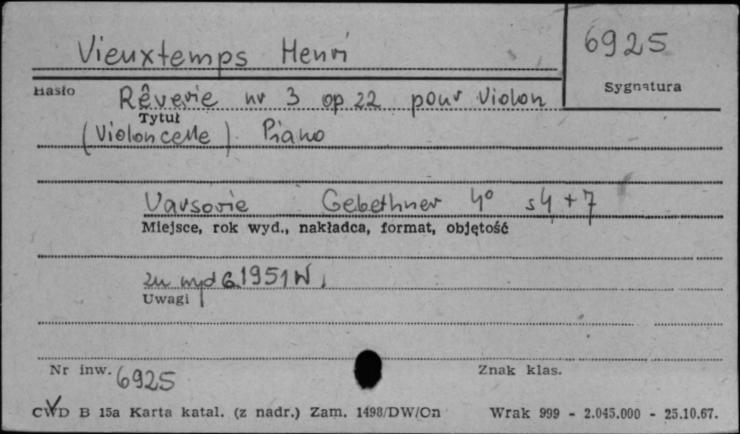 Vieuxtemps Henri
6925
Hasło
Sygnatura
Rêverie nr 3 op 22 pour Violon
Tytuł
(Violoncelle) Piano
Varsovie Gebethner 4° s 4 + 7
Miejsce, rok wyd., nakładca, format, objętość
G 1951 W
Uwagi
Nr inw. 6925
Znak klas.
CWD B 15a Karta katal. (z nadr.) Zam. 1498/DW/On Wrak 999 - 2.045.000 - 25.10.67.